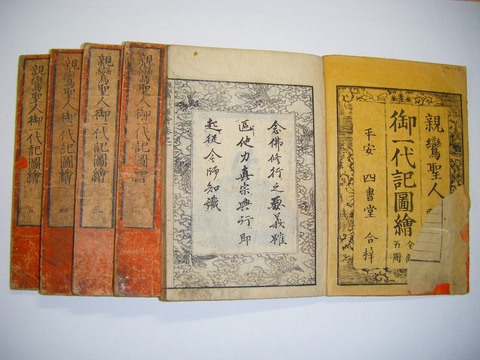 親鸞聖人
御一代記圖繪
平安 四書堂 合梓
念佛修行之要義雖
區他力真宗興行即
起從今師知識
親鸞聖人御一代記圖繪
親鸞聖人御一代記圖繪
親鸞聖人御一代記圖繪 四
親鸞聖人御一代記圖繪 五